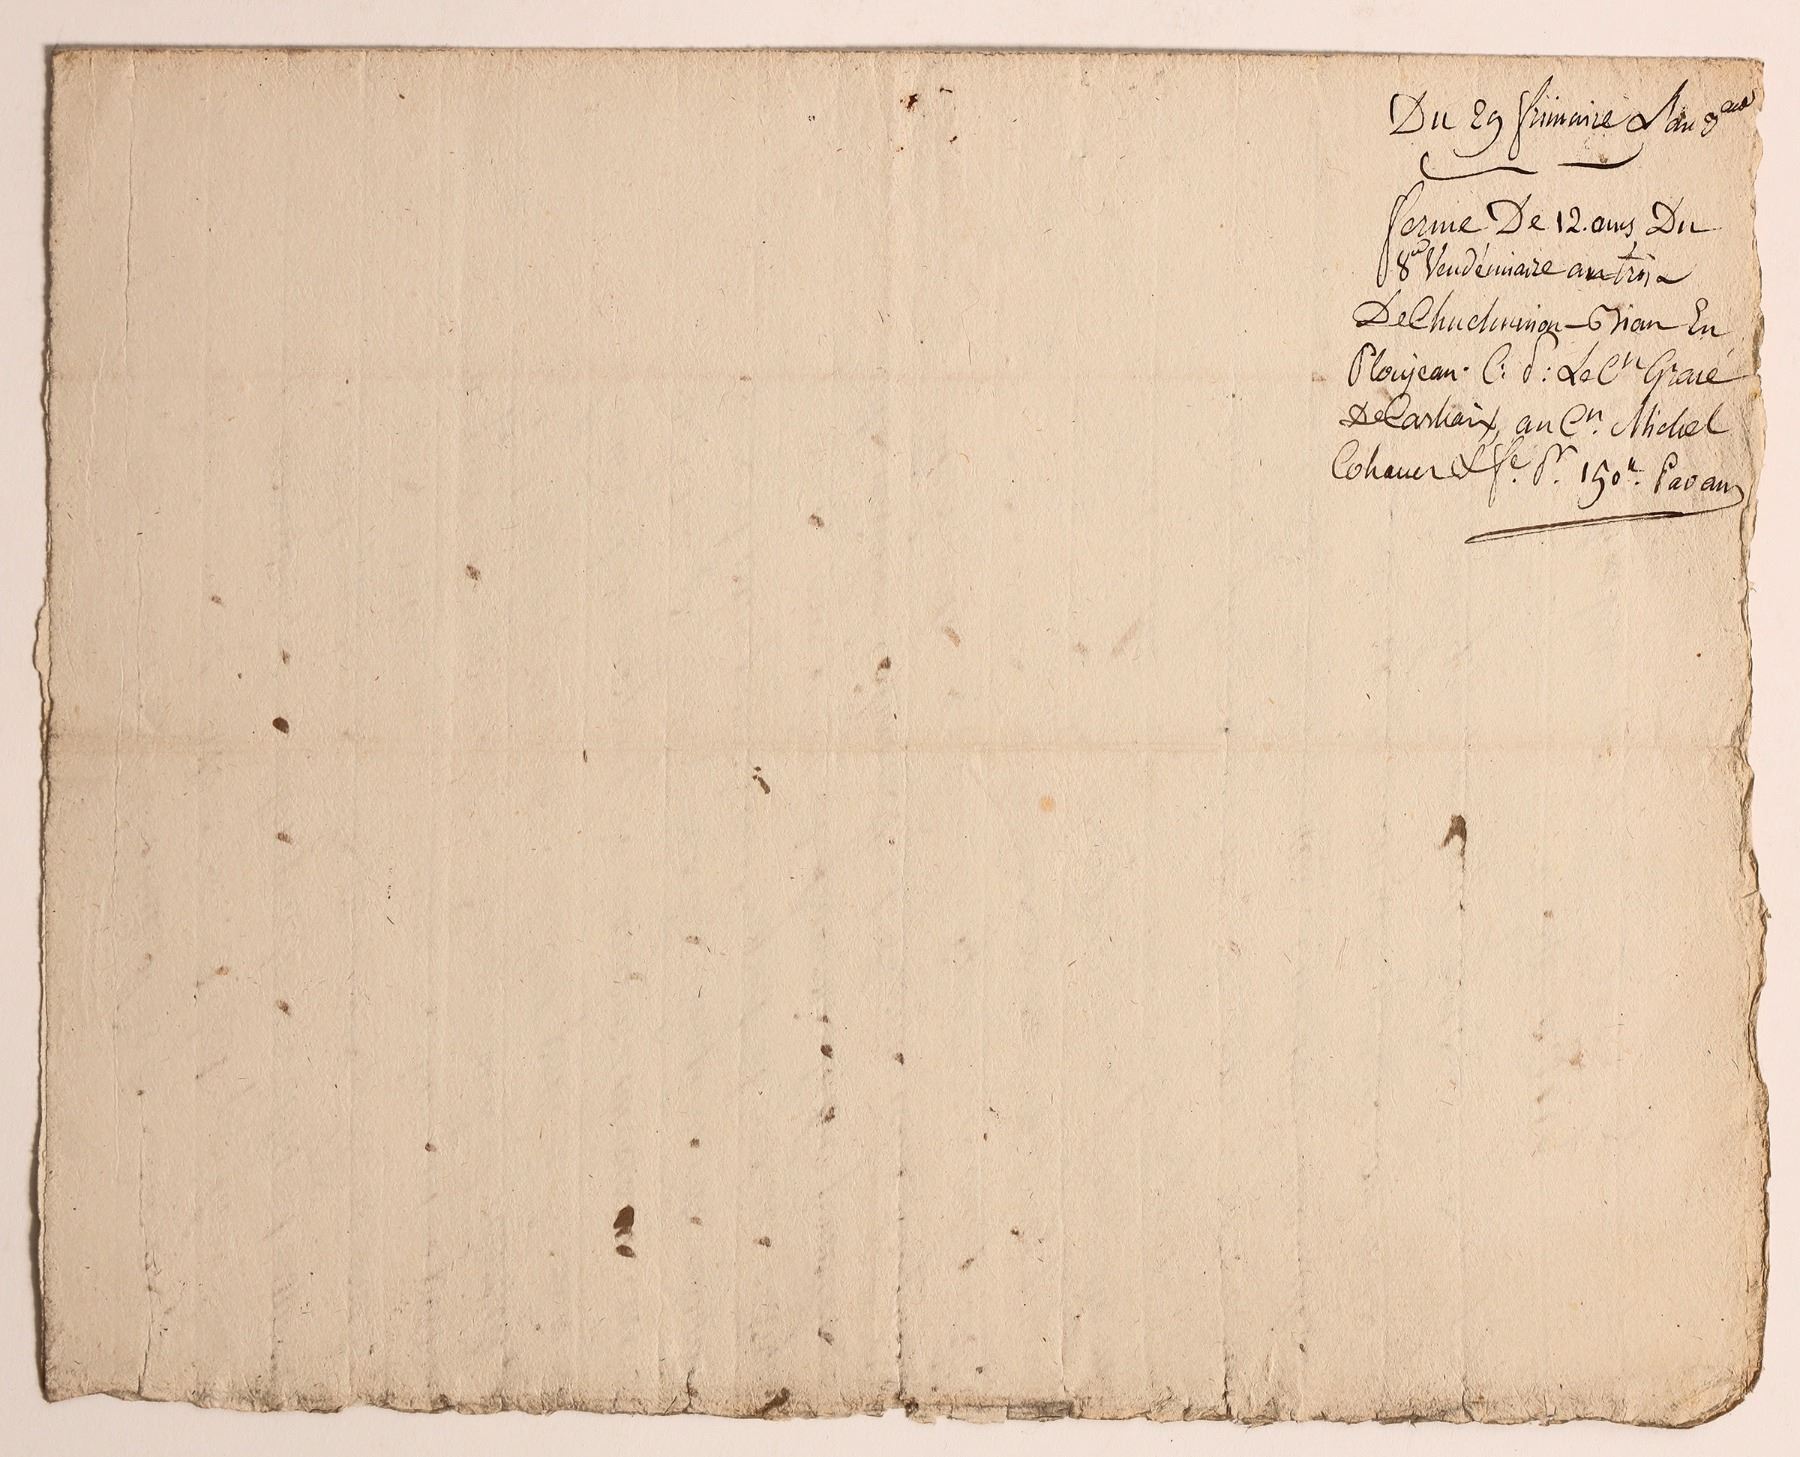 Du 29 frimaire L'an 3eme
ferme De 12. ans Du
8 Vendémiaire an trois
De en
Ploujean. C: d: Le Cn Gracé
De Carhaix, au Cn. Michel
Cohauer & fe. pr. 150 tt. Par an